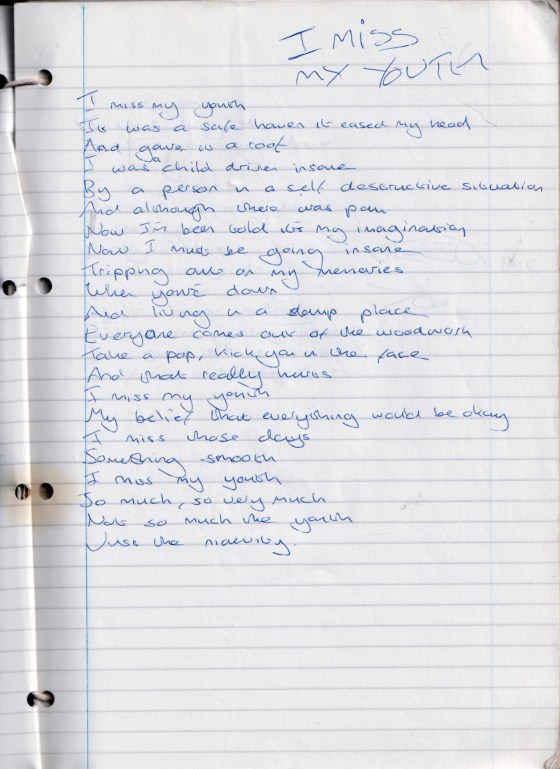 I MISS
MY YOUTH
I miss my youth
It was a safe haven it eased my head
And gave us a roof
I was a child driven insane
By a person in a self destructive situation
And although there was pain
Now I'm been told it's my imagination
Now I must be going insane
Tripping out on my memories
When you're down
And living in a damp place
Everyone comes out of the woodwork
Take a pop, kick you in the face
And that really hurts
I miss my youth
My belief that everything would be okay
I miss those days
Something smooth
I miss my youth
So much, so very much
Not so much the youth
Just the naevity.